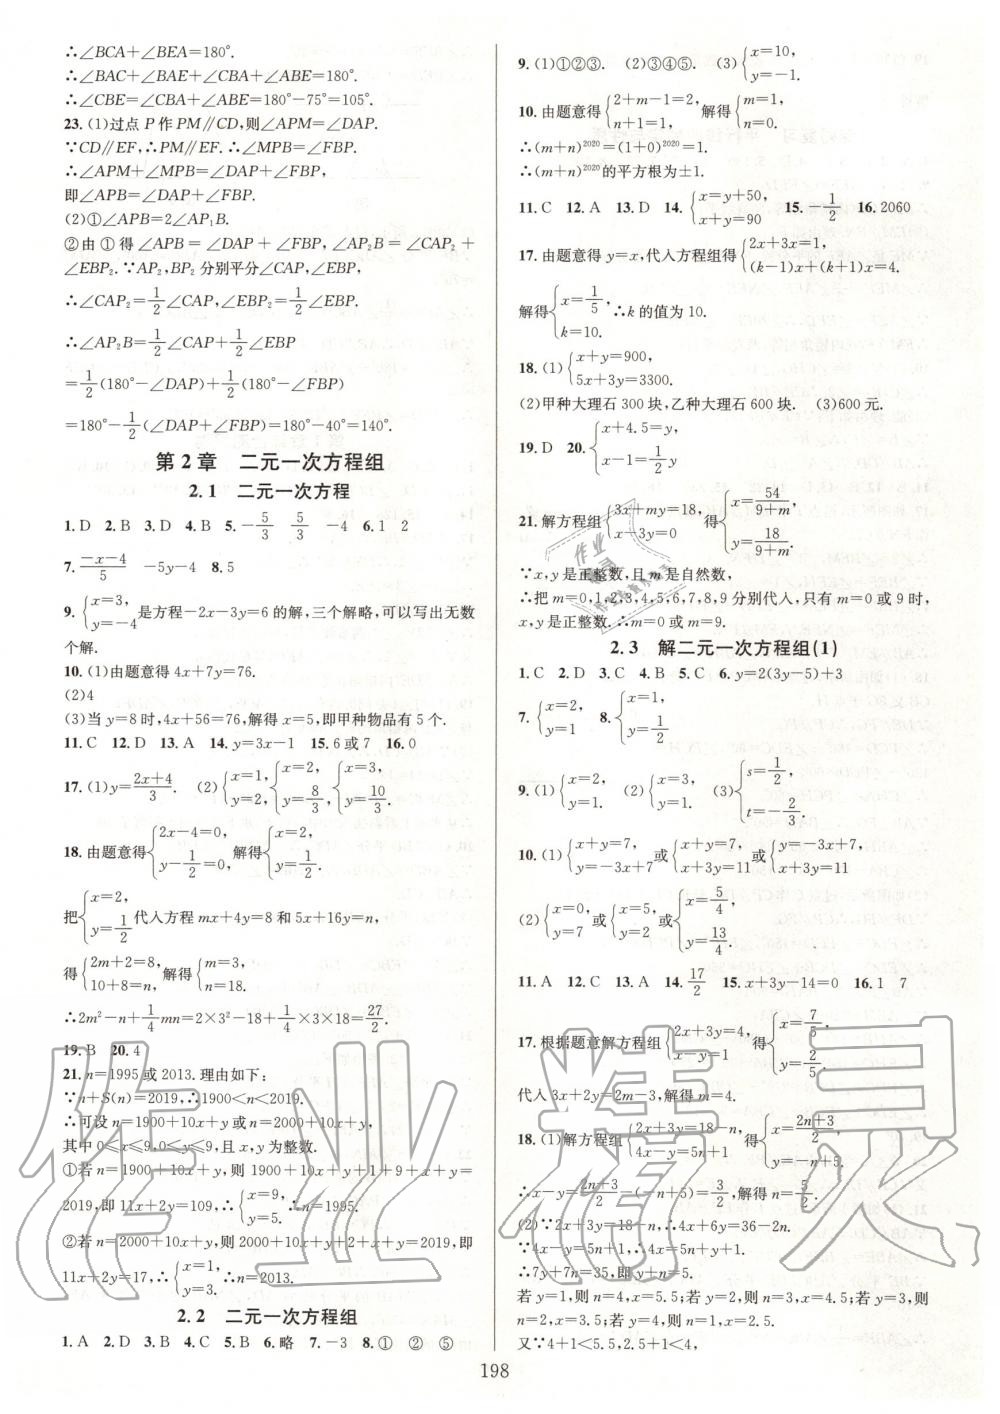 ∴∠BCA+∠BEA=180°.
∴∠BAC+∠BAE+∠CBA+∠ABE=180°.
∴∠CBE=∠CBA+∠ABE=180°-75°=105°.
23.(1)过点P作PM∥CD,则∠APM=∠DAP.
∵CD∥EF,∴PM∥EF.∴∠MPB=∠FBP.
∴∠APM+∠MPB=∠DAP+∠FBP,
即∠APB=∠DAP+∠FBP.
(2)①∠APB=2∠AP₁B.
②由①得∠APB=∠DAP+∠FBP,∠AP₂B=∠CAP₂+
∠EBP₂.∵AP₂,BP₂分别平分∠CAP,∠EBP,
∴∠CAP₂=1/2∠CAP,∠EBP₂=1/2∠EBP.
∴∠AP₂B=1/2∠CAP+1/2∠EBP
=1/2(180°-∠DAP)+1/2(180°-∠FBP)
=180°-1/2(∠DAP+∠FBP)=180°-40°=140°.
第2章 二元一次方程组
2.1 二元一次方程
1.D 2.B 3.D 4.B 5.-5/3 5/3 -4 6.1 2
7.(-x-4)/5 -5y-4 8.5
9.{x=3, y=-4 是方程-2x-3y=6的解,三个解略,可以写出无数
个解.
10.(1)由题意得4x+7y=76.
(2)4
(3)当y=8时,4x+56=76,解得x=5,即甲种物品有5个.
11.C 12.D 13.A 14.y=3x-1 15.6或7 16.0
17.(1)y=(2x+4)/3. (2){x=1, y=2, {x=2, y=8/3, {x=3, y=10/3.
18.由题意得{2x-4=0, y-1/2=0, 解得{x=2, y=1/2.
把{x=2, y=1/2 代入方程mx+4y=8和5x+16y=n,
得{2m+2=8, 10+8=n, 解得{m=3, n=18.
∴2m²-n+1/4mn=2×3²-18+1/4×3×18=27/2.
19.B 20.4
21.n=1995或2013.理由如下:
∵n+S(n)=2019,∴1900<n<2019.
∴可设n=1900+10x+y或n=2000+10x+y,
其中0≤x≤9,0≤y≤9,且x,y为整数.
①若n=1900+10x+y,则1900+10x+y+1+9+x+y=
2019,即11x+2y=109,∴{x=9, y=5. ∴n=1995.
②若n=2000+10x+y,则2000+10x+y+2+x+y=2019,即
11x+2y=17,∴{x=1, y=3. ∴n=2013.
2.2 二元一次方程组
1.A 2.D 3.B 4.C 5.B 6.略 7.-3 8.① ② ⑤
9.(1)①②③. (2)③④⑤. (3){x=10, y=-1.
10.由题意得{2+m-1=2, n+1=1, 解得{m=1, n=0.
∴(m+n)²⁰²⁰=(1+0)²⁰²⁰=1.
∴(m+n)²⁰²⁰的平方根为±1.
11.C 12.A 13.D 14.{x=y+50, x+y=90 15.-1/2 16.2060
17.由题意得y=x,代入方程组得{2x+3x=1, (k-1)x+(k+1)x=4.
解得{x=1/5, k=10. ∴k的值为10.
18.(1){x+y=900, 5x+3y=3300.
(2)甲种大理石300块,乙种大理石600块. (3)600元.
19.D 20.{x+4.5=y, x-1=1/2y
21.解方程组{3x+my=18, x+3y=0 得{x=54/(9+m), y=18/(9+m).
∵x,y是正整数,且m是自然数,
∴把m=0,1,2,3,4,5,6,7,8,9分别代入,只有m=0或9时,
x,y是正整数.∴m=0或m=9.
2.3 解二元一次方程组(1)
1.C 2.D 3.C 4.B 5.C 6.y=2(3y-5)+3
7.{x=2, y=1 8.{x=1, y=-1/2
9.(1){x=2, y=1. (2){x=3, y=1. (3){s=1/2, t=-2/3.
10.(1){x+y=7, y=-3x+7 或{x+y=7, x+3y=11 或{y=-3x+7, x+3y=11
(2){x=0, y=7 或{x=5, y=2 或{x=5/4, y=13/4.
11.A 12.C 13.A 14.17/2 15.x+3y-14=0 16.1 7
17.根据题意解方程组{2x+3y=4, x-y=1 得{x=7/5, y=2/5.
代入3x+2y=2m-3,解得m=4.
18.(1)解方程组{2x+3y=18-n, 4x-y=5n+1 得{x=(2n+3)/2, y=-n+5.
∴x-y=(2n+3)/2-(-n+5)=3/2,解得n=5/2.
(2)∵2x+3y=18-n,∴4x+6y=36-2n.
∵4x-y=5n+1,∴4x=5n+1+y.
∴7y+7n=35,即y+n=5.
若y=1,则n=4,x=5.5;若y=2,则n=3,x=4.5;若y=3,则
n=2,x=3.5;若y=4,则n=1,x=2.5.
又∵4+1<5.5,2.5+1<4,
198
作业精灵